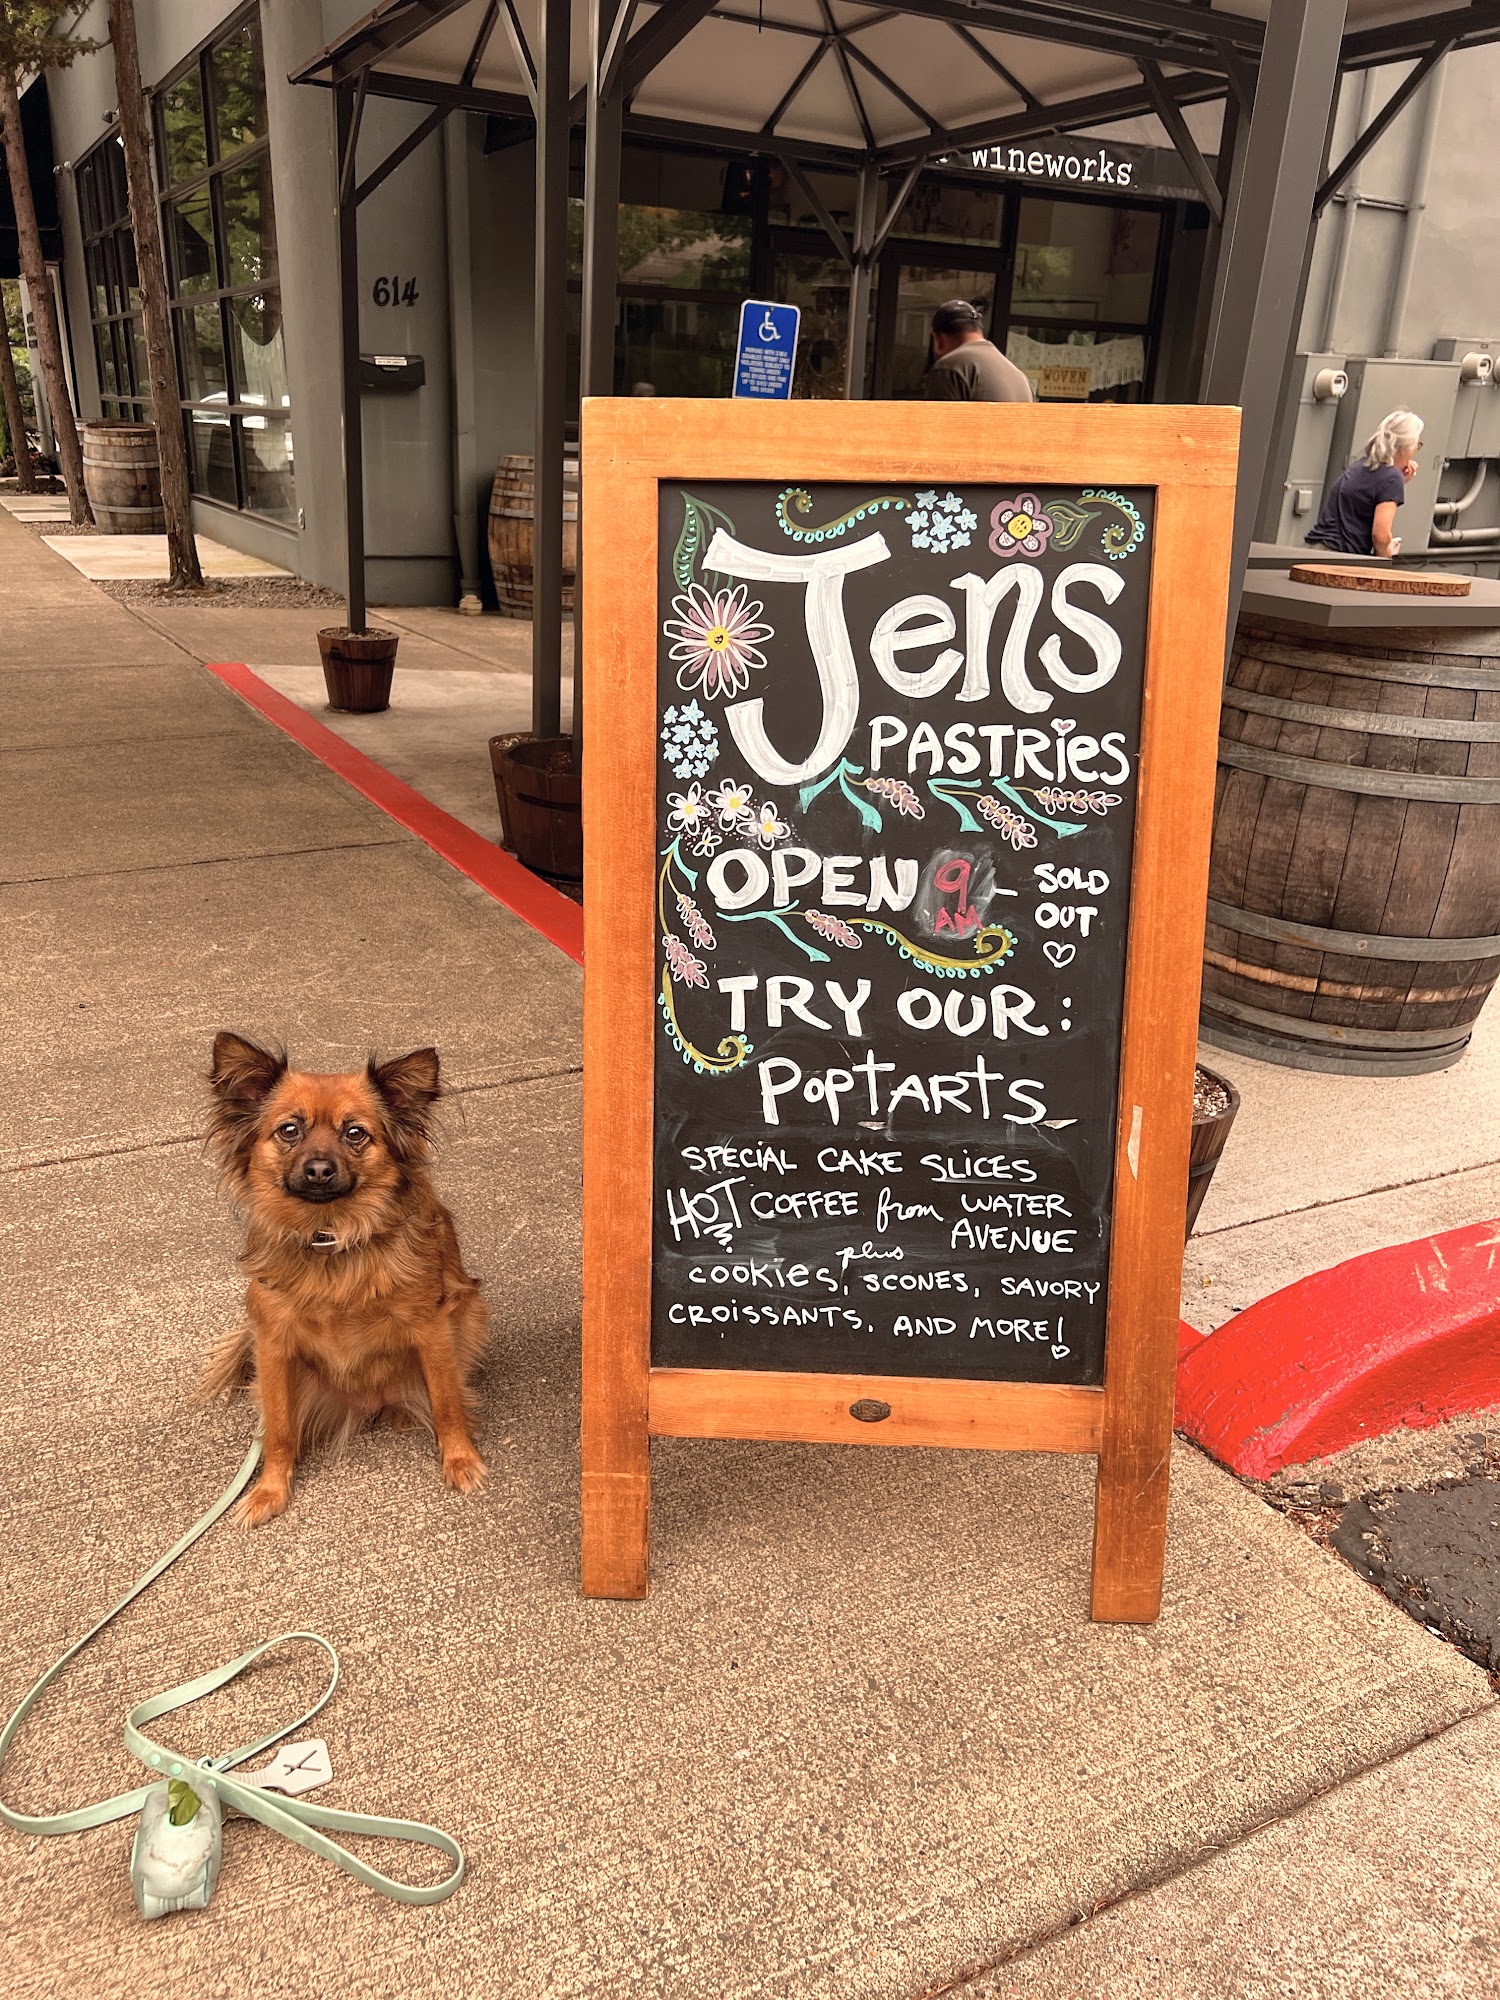 wineworks
614
WOVEN
Jens
PASTRIES
OPEN 9 AM – SOLD OUT
TRY OUR:
POPTARTS
SPECIAL CAKE SLICES
HOT COFFEE from WATER
AVENUE
plus
COOKIES, SCONES, SAVORY
CROISSANTS, AND MORE!